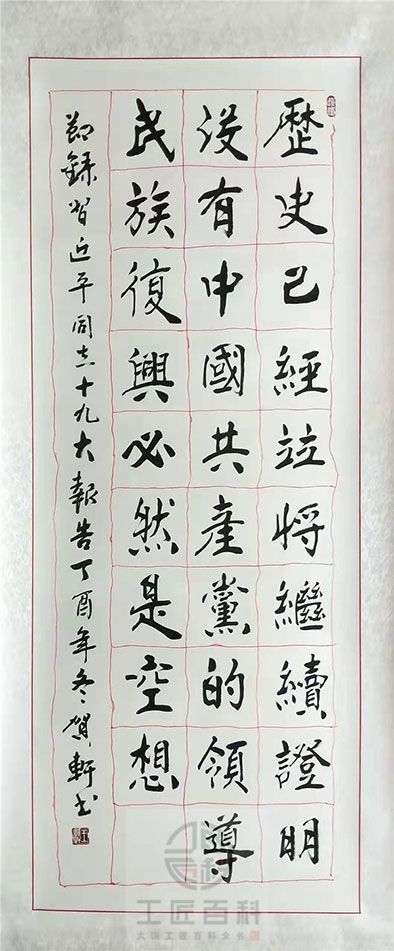 歷史已經竝將繼續證明
沒有中國共產黨的領導
民族復興必然是空想
節錄習近平同志十九大報告丁酉年冬賀軒书
工匠百科
大国工匠百科全书